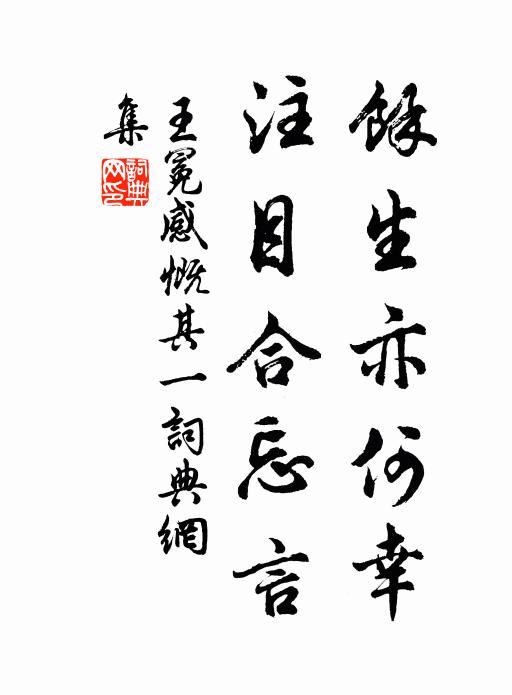 餘生亦何幸
注目合忘言
王冕感慨其一詞典網
集
詞典
网印